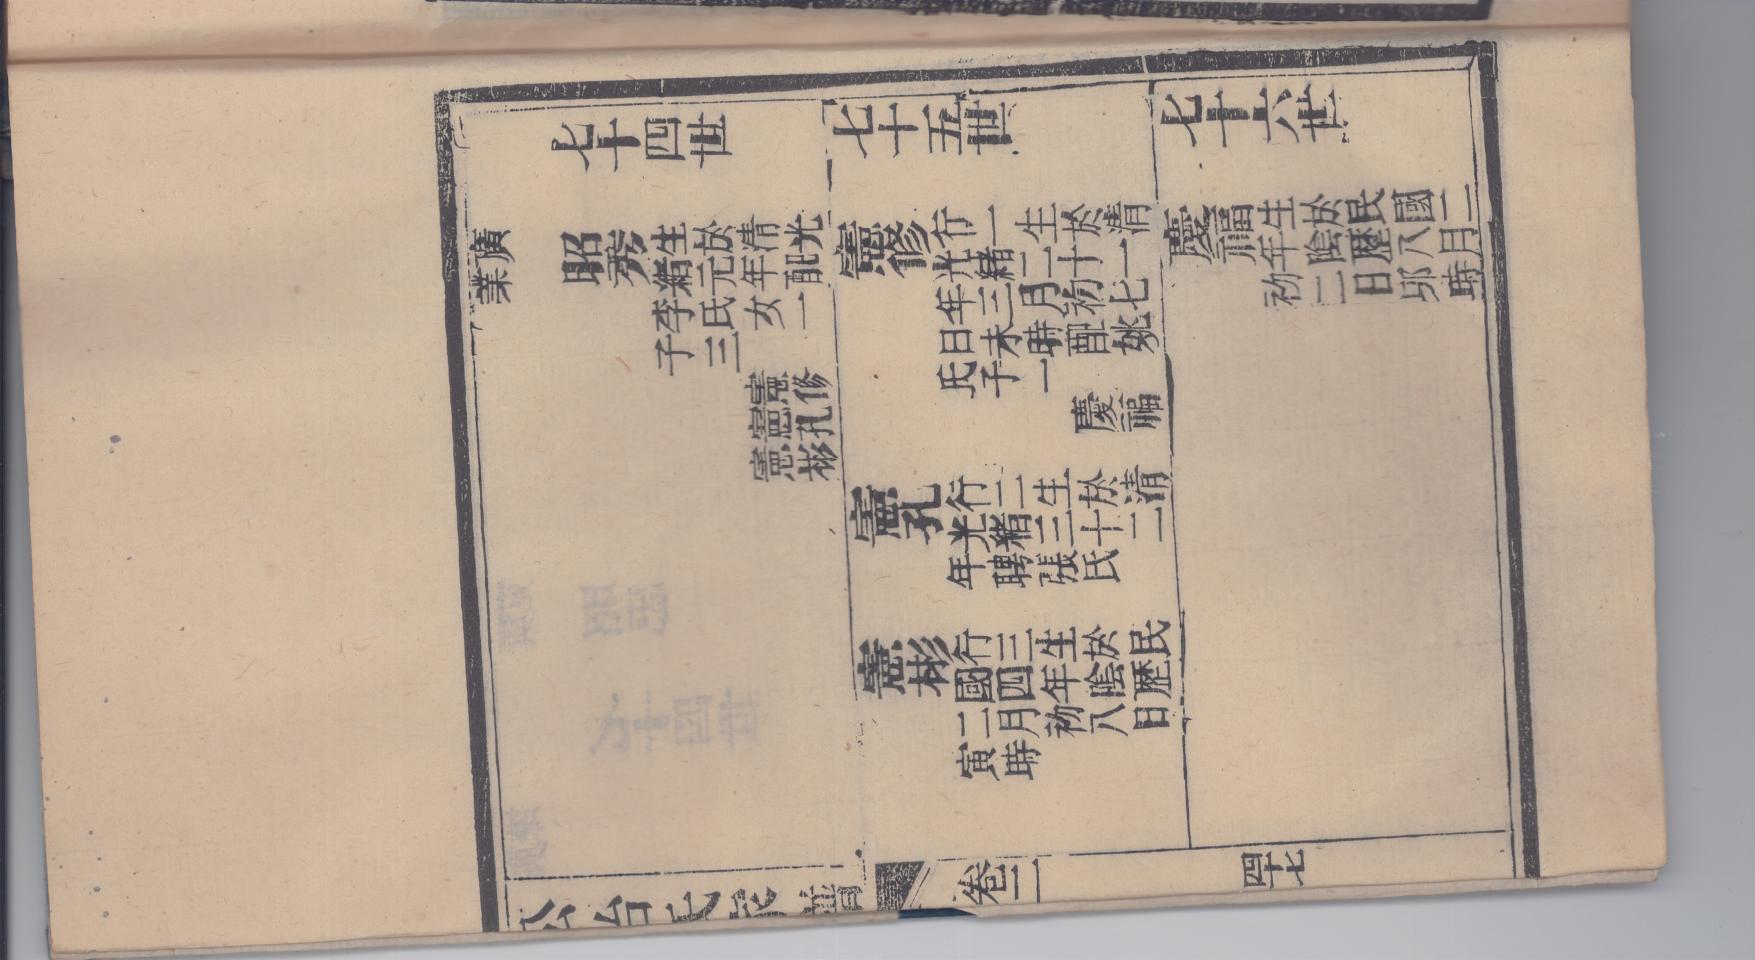 七十四世
廣業
昭
生於清光
緒元年配
李氏女一
子三
憲修
憲孔
憲彬
七十五世
憲修
行一生於清
光緒二十一
年三月初七
日未時配姚
氏子一
慶福
憲孔
行二生於清
光緒三十二
年聘張氏
憲彬
行三生於民
國四年陰歷
二月初八日
寅時
七十六世
慶福
生於民國二
年陰歷八月
初二日卯時
公冶氏 譜
卷二
四十七